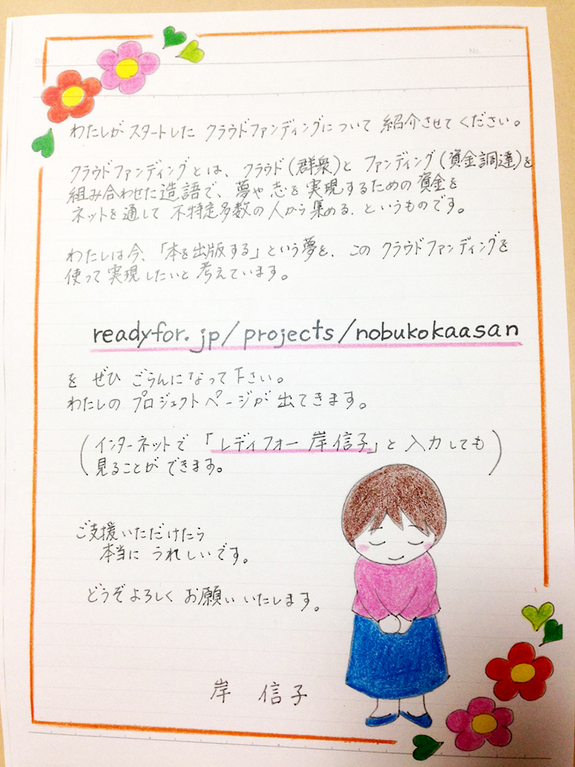 わたしがスタートした クラウドファンディングについて 紹介させてください。
クラウドファンディングとは、クラウド(群衆)と ファンディング(資金調達)を
組み合わせた造語で、夢や志を実現するための資金を
ネットを通して 不特定多数の人から集める、というものです。
わたしは今、「本を出版する」という夢を、この クラウドファンディングを
使って実現したいと考えています。
readyfor.jp/projects/nobukokaasan
を ぜひ ごらんになって下さい。
わたしの プロジェクトページが 出てきます。
(インターネットで 「レディフォー 岸信子」と 入力しても
見ることができます。)
ご支援いただけたら
本当に うれしいです。
どうぞよろしく お願いいたします。
岸 信子